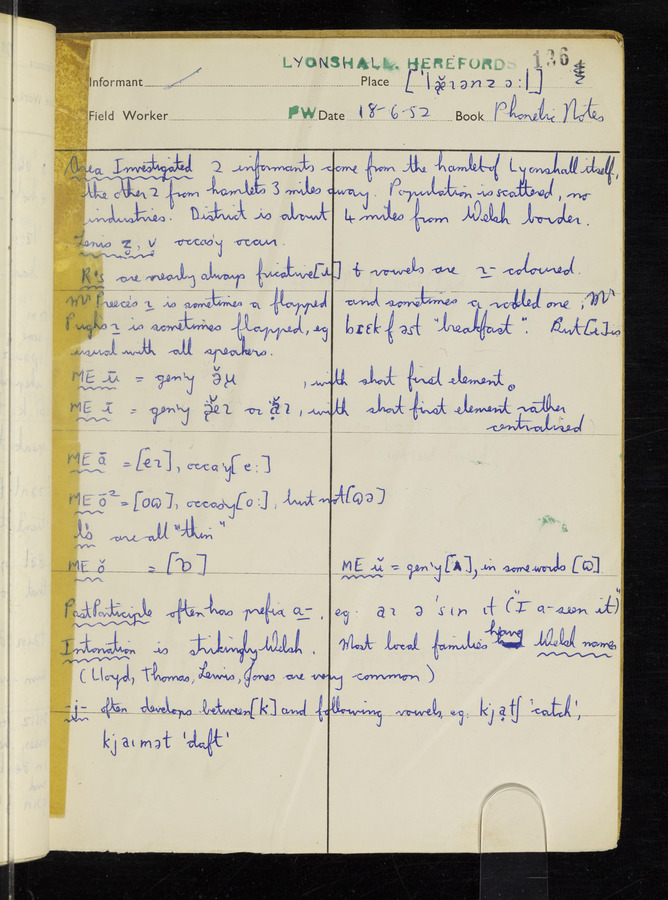 LYONSHALL, HEREFORDS 126
Informant Place [ˈlæ̌ɪənzɔːl]
Field Worker PW Date 18-6-52 Book Phonetic Notes
Area Investigated 2 informants come from the hamlet of Lyonshall itself,
the other 2 from hamlets 3 miles away. Population is scattered, no
industries. District is about 4 miles from Welsh border.
Lenis z̬, v̬ occasy occur.
R's are nearly always fricative [ɹ] & vowels are r- coloured.
Mr Preece's r is sometimes a flapped and sometimes a rolled one; Mr
Pugh's r is sometimes flapped, eg bɾɛkfəst "breakfast". But [ɹ] is
usual with all speakers.
ME ū = gen'y ə̌u , with short first element.
ME ī = gen'y æ̌ɪ or ǎɪ, with short first element rather
centralised
ME ā = [eɪ], occa'y [e:]
ME ō² = [oω], occasy [o:], but not [ωə]
l's are all "thin"
ME ŏ = [ɒ] ME ŭ = gen'y [ʌ], in some words [ω]
Past Participle often has prefix a-, eg. aɪ ə ˈsin ɪt ("I a-seen it")
Intonation is strikingly Welsh. Most local families have Welsh names
(Lloyd, Thomas, Lewis, Jones are very common)
-j- often develops between [k] and following vowels, eg. kjatʃ 'catch',
kjaɪmət 'daft'